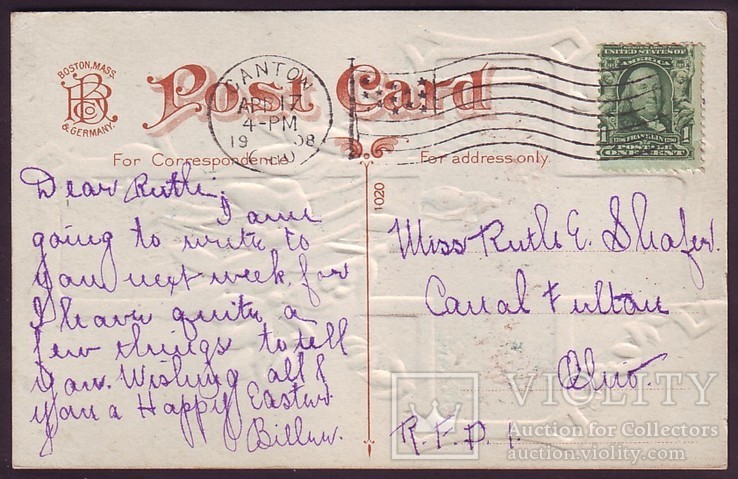 BOSTON, MASS.
& GERMANY.
Post Card
CANTON
APR 17
4-PM
1908
UNITED STATES OF AMERICA
FRANKLIN
1 1
POSTAGE
ONE CENT
For Correspondence
For address only.
1020
Dear Ruth:
I am
going to write to
you next week, for
I have quite a
few things to tell
you. Wishing all &
you a Happy Easter.
Miss Ruth E. Shafer.
Canal Fulton
Ohio.
R.F.D. 1.
VIOLITY
Auction for Collectors
auction.violity.com